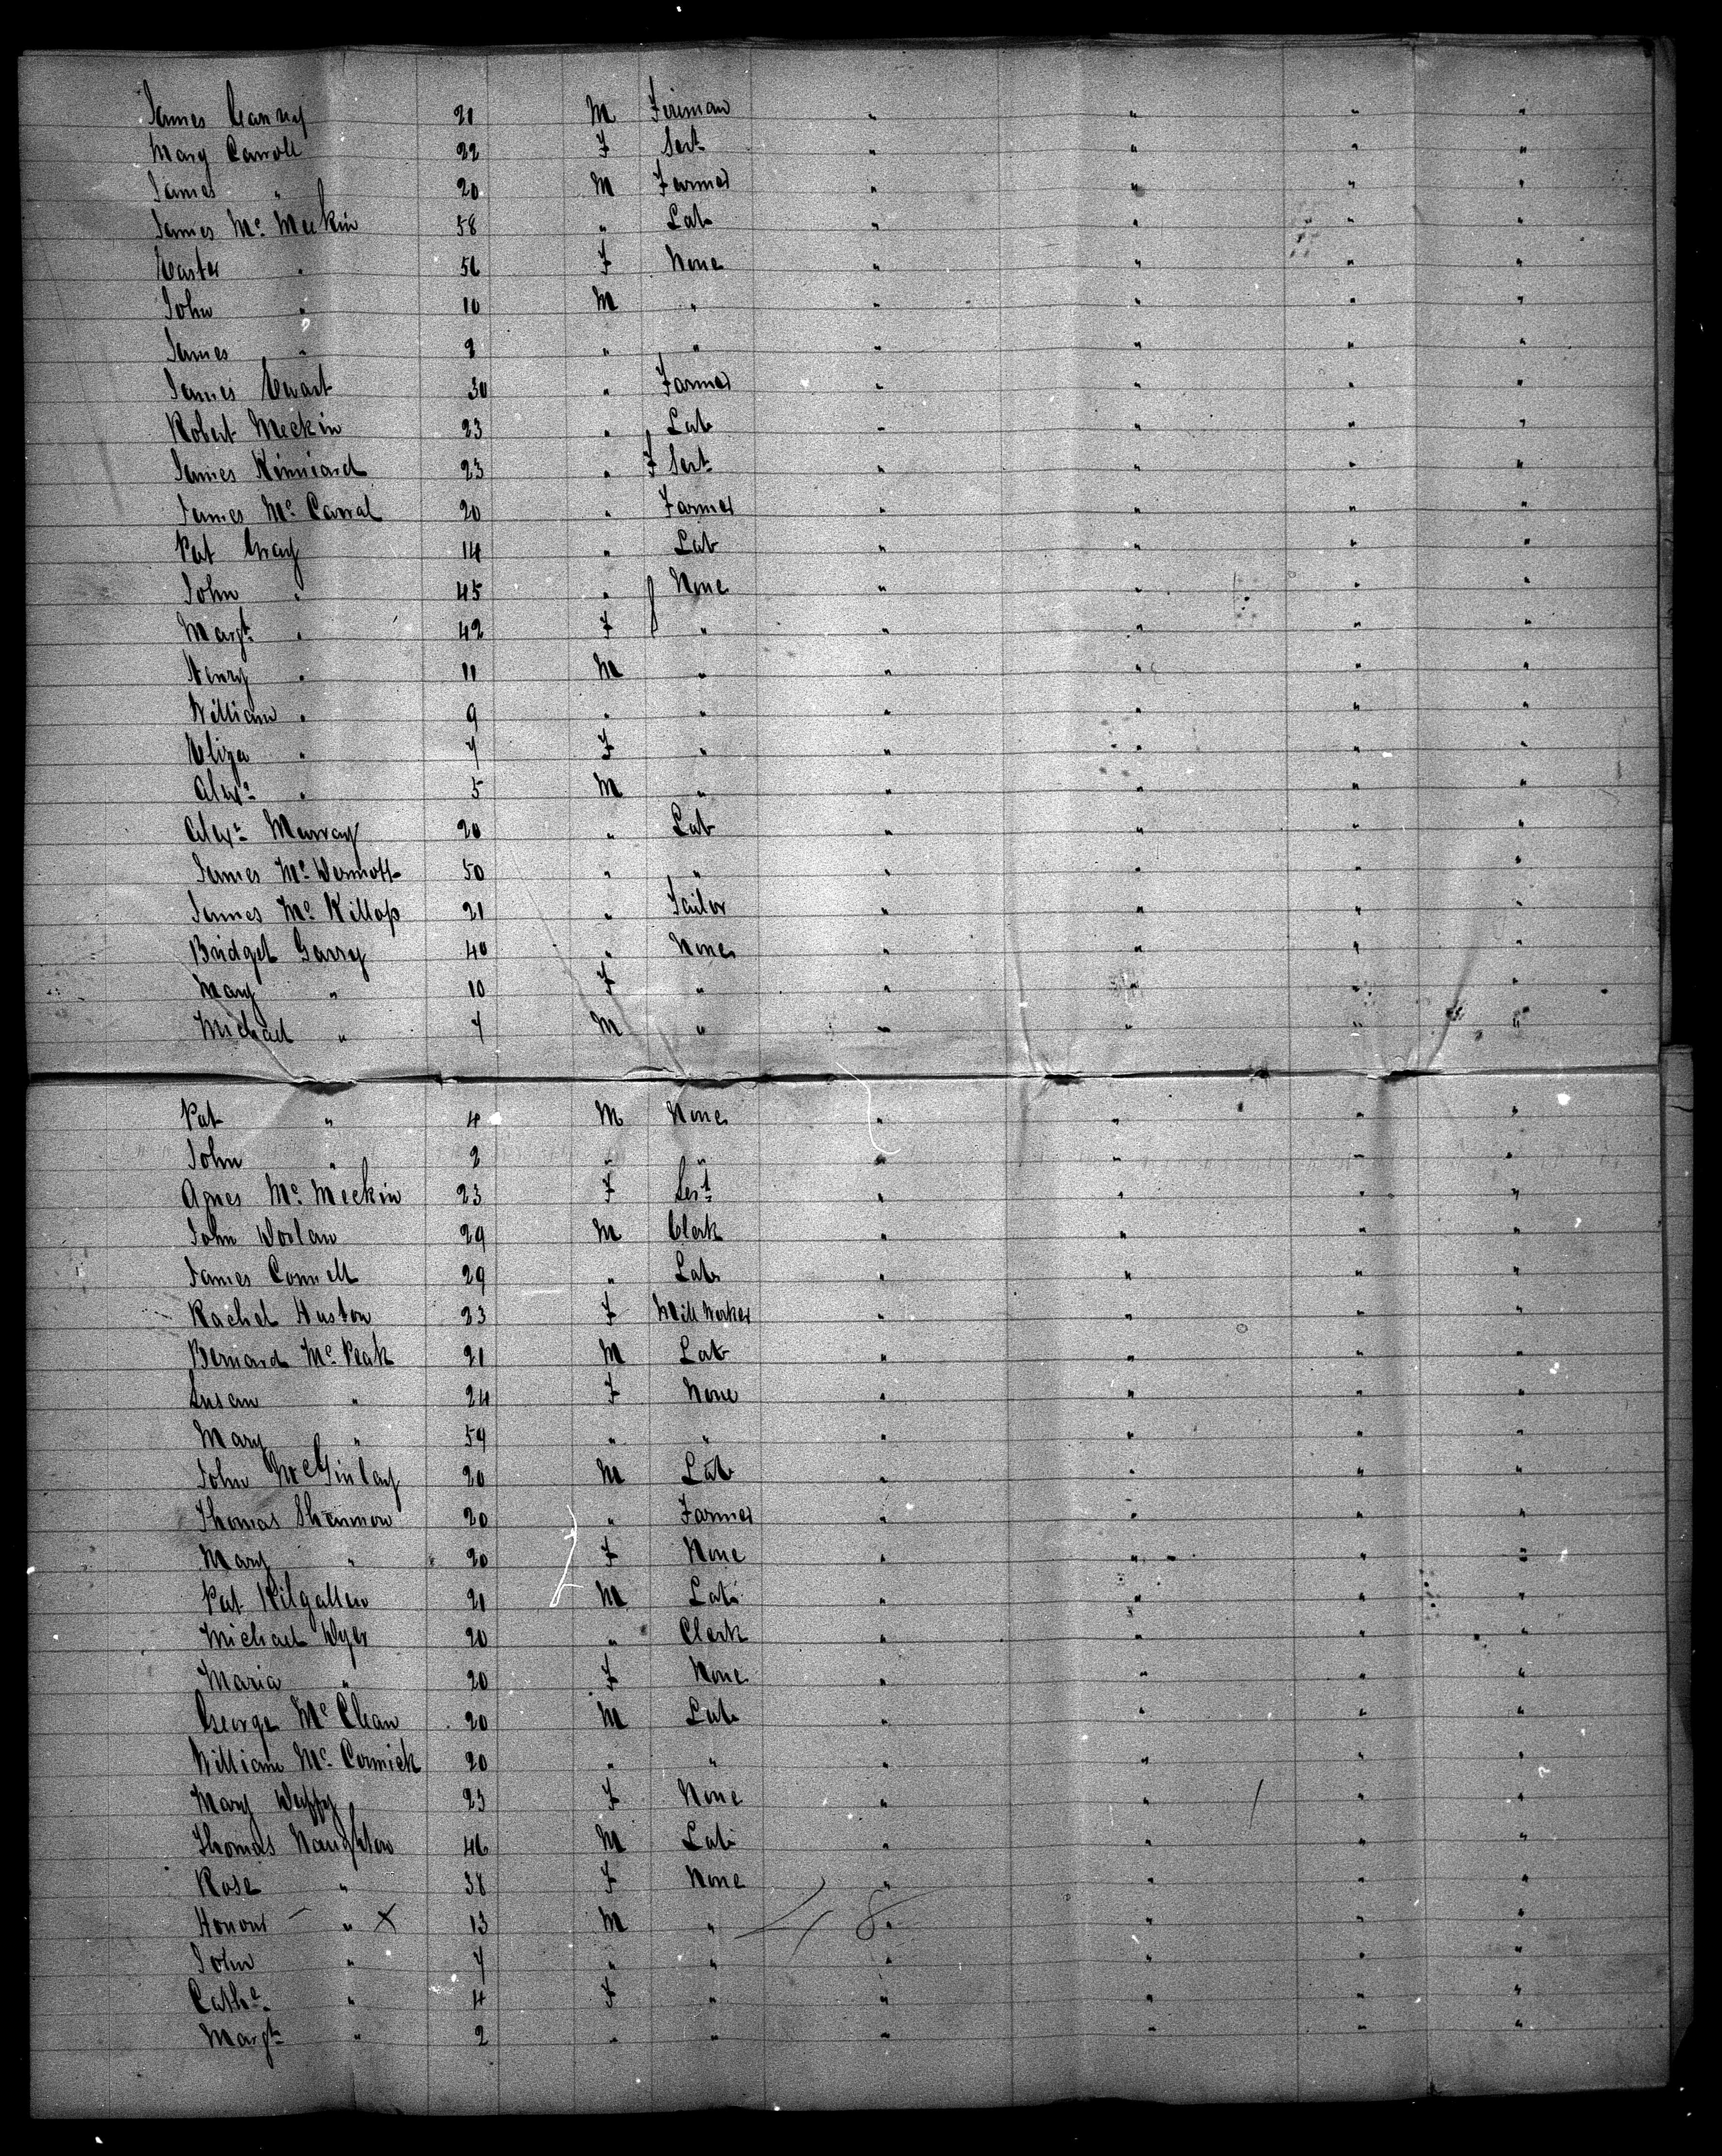 James Canny 21 M Fireman " " " "
Mary Carroll 22 F Sert " " " "
James " 20 M Farmer " " " "
James Mc Meekin 58 " Lab " " " "
Easter " 56 F None " " " "
John " 10 M " " " " "
James " 9 " " " " " "
James Ewart 30 " Farmer " " " "
Robert Meekin 23 " Lab " " " "
James Kinniard 23 " F Sert " " " "
James Mc Carral 20 " Farmer " " " "
Pat Gray 14 " Lab " " " "
John " 45 " None " " " "
Margt " 42 F " " " " "
Henry " 11 M " " " " "
William " 9 " " " " " "
Eliza " 7 F " " " " "
Alexr " 5 M " " " " "
Alexr Murray 20 " Lab " " " "
James Mc Dermott 50 " " " " " "
James Mc Killop 21 " Tailor " " " "
Bridget Garry 40 " None " " " "
Mary " 10 F " " " " "
Michael " 7 M " " " " "
Pat " 4 M None " " " "
John " 2 " " " " " "
Agnes Mc Meekin 23 F Sert " " " "
John Doolan 29 M Clerk " " " "
James Connell 29 " Lab " " " "
Rachel Huston 23 F Mill Worker " " " "
Bernard Mc Peak 21 M Lab " " " "
Susan " 24 F None " " " "
Mary " 59 " " " " " "
John McGinlay 20 M Lab " " " "
Thomas Shannon 20 " Farmer " " " "
Mary " 20 F None " " " "
Pat Kilgallen 21 M Lab " " " "
Michael Dyer 20 " Clerk " " " "
Maria " 20 F None " " " "
George Mc Clean 20 M Lab " " " "
William Mc Cormick 20 " " " " " "
Mary Duffy 23 F None " " " "
Thomas Naughton 46 M Lab " " " "
Rose " 38 F None " " " "
Honour " X 13 M " 48 " " " "
John " 7 " " " " " "
Cathe " 4 F " " " " "
Margt " 2 " " " " " "